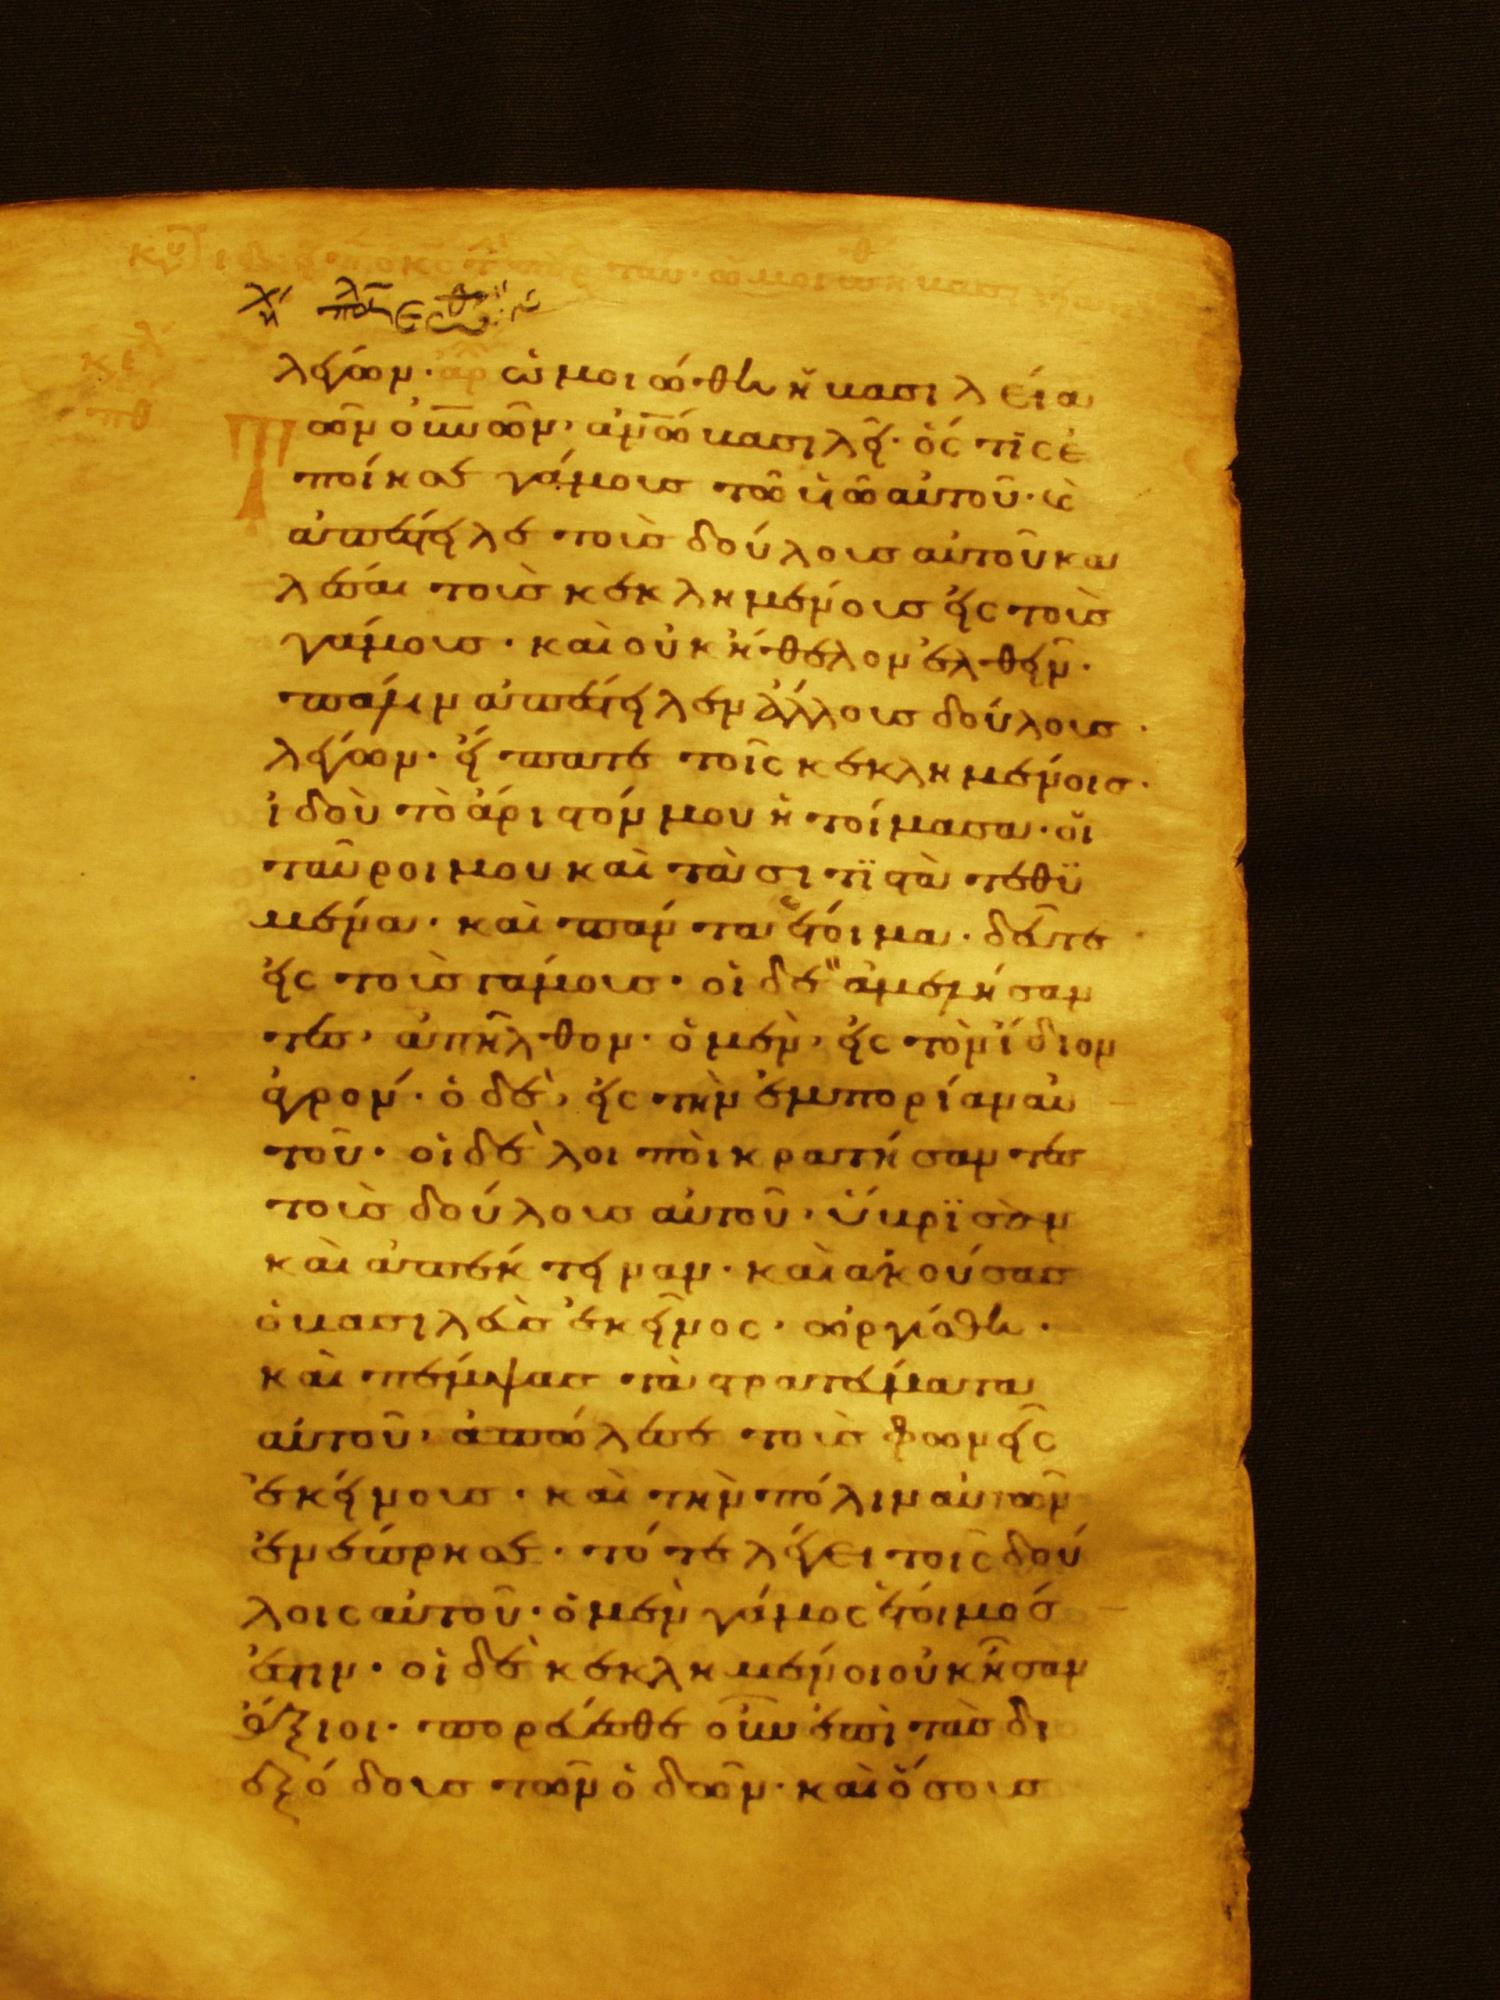 λέγων· ὡμοιώθη ἡ βασιλεία
τῶν οὐνῶν· ἀνῶ βασιλεῖ· ὅς τις ἐ
ποίησε γάμους τῶ υἱῶ αὐτοῦ· καὶ
ἀπέστειλε τοὺς δούλους αὐτοῦ κα
λέσαι τοὺς κεκλημένους εἰς τοὺς
γάμους· καὶ οὐκ ἤθελον ἐλθεῖν·
πάλιν ἀπέστειλεν ἄλλους δούλους
λέγων· εἴπατε τοῖς κεκλημένοις·
ἰδοὺ τὸ ἄριστόν μου ἡτοίμασα· οἱ
ταῦροι μου καὶ τὰ σιτϊστὰ τεθϋ
μένα· καὶ πάντα ἕτοιμα· δεῦτε
εἰς τοὺς γάμους· οἱ δὲ ἀμελήσαν
τες, ἀπῆλθον· ὁ μὲν, εἰς τὸν ἴδιον
ἀγρόν· ὁ δὲ, εἰς τὴν ἐμπορίαν αὐ
τοῦ· οἱ δὲ λοιποὶ κρατήσαντες
τοὺς δούλους αὐτοῦ, ὕβρϊσαν
καὶ ἀπέκτειναν· καὶ ἀκούσας
ὁ βασιλεὺς ἐκεῖνος, ὠργίσθη·
καὶ πέμψας τὰ στρατεύματα
αὐτοῦ, ἀπώλεσε τοὺς φονεῖς
ἐκείνους· καὶ τὴν πόλιν αὐτῶν
ἐνέπρησε· τότε λέγει τοῖς δού
λοις αὐτοῦ· ὁ μὲν γάμος ἕτοιμός
ἐστιν· οἱ δὲ κεκλημένοι οὐκ ἦσαν
ἄξιοι· πορεύεσθε οὖν ἐπὶ τὰς δι
εξόδους τῶν ὁδῶν· καὶ ὅσους